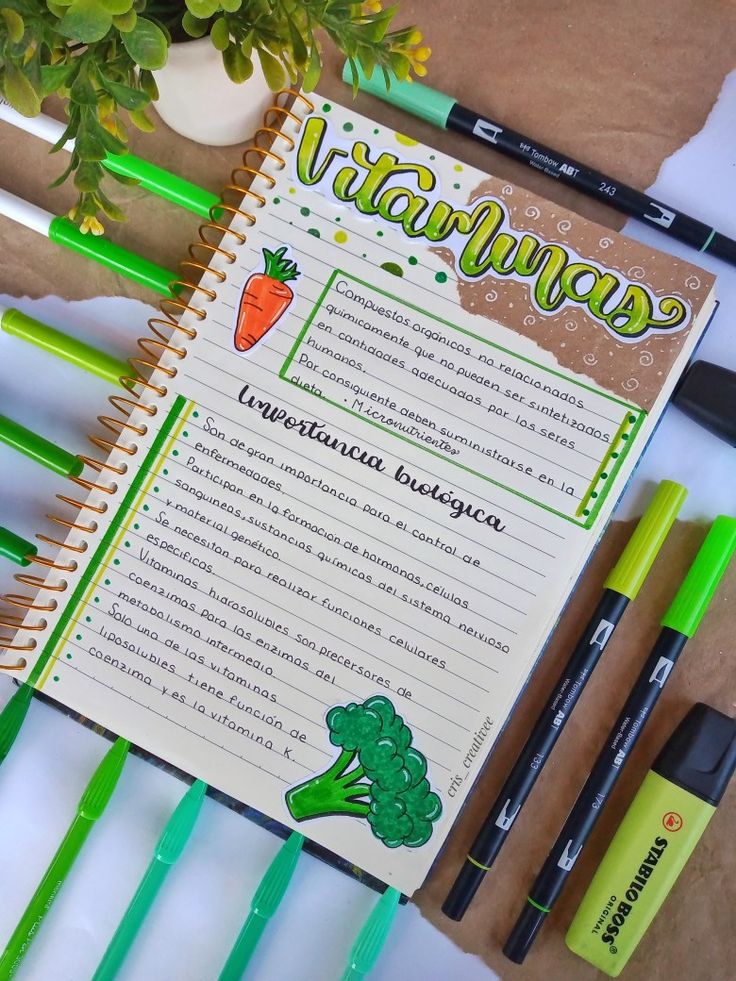 Vitaminas
Compuestos orgánicos no relacionados
químicamente que no pueden ser sintetizados
en cantidades adecuadas por los seres
humanos.
Por consiguiente deben suministrarse en la
dieta. • Micronutrientes
Importancia biológica
Son de gran importancia para el control de
enfermedades.
Participan en la formación de hormonas, células
sanguineas, sustancias químicas del sistema nervioso
y material genético.
Se necesitan para realizar funciones celulares
especificas.
Vitaminas hidrosolubles son precersores de
coenzimas para las enzimas del
metabolismo intermedio
Solo una de las vitaminas
liposolubles tiene función de
coenzima y es la vitamina K.
cris_creativee
Tombow ABT
Water-Based
243
Tombow ABT
Water-Based
133
Tombow ABT
Water-Based
173
STABILO BOSS
ORIGINAL